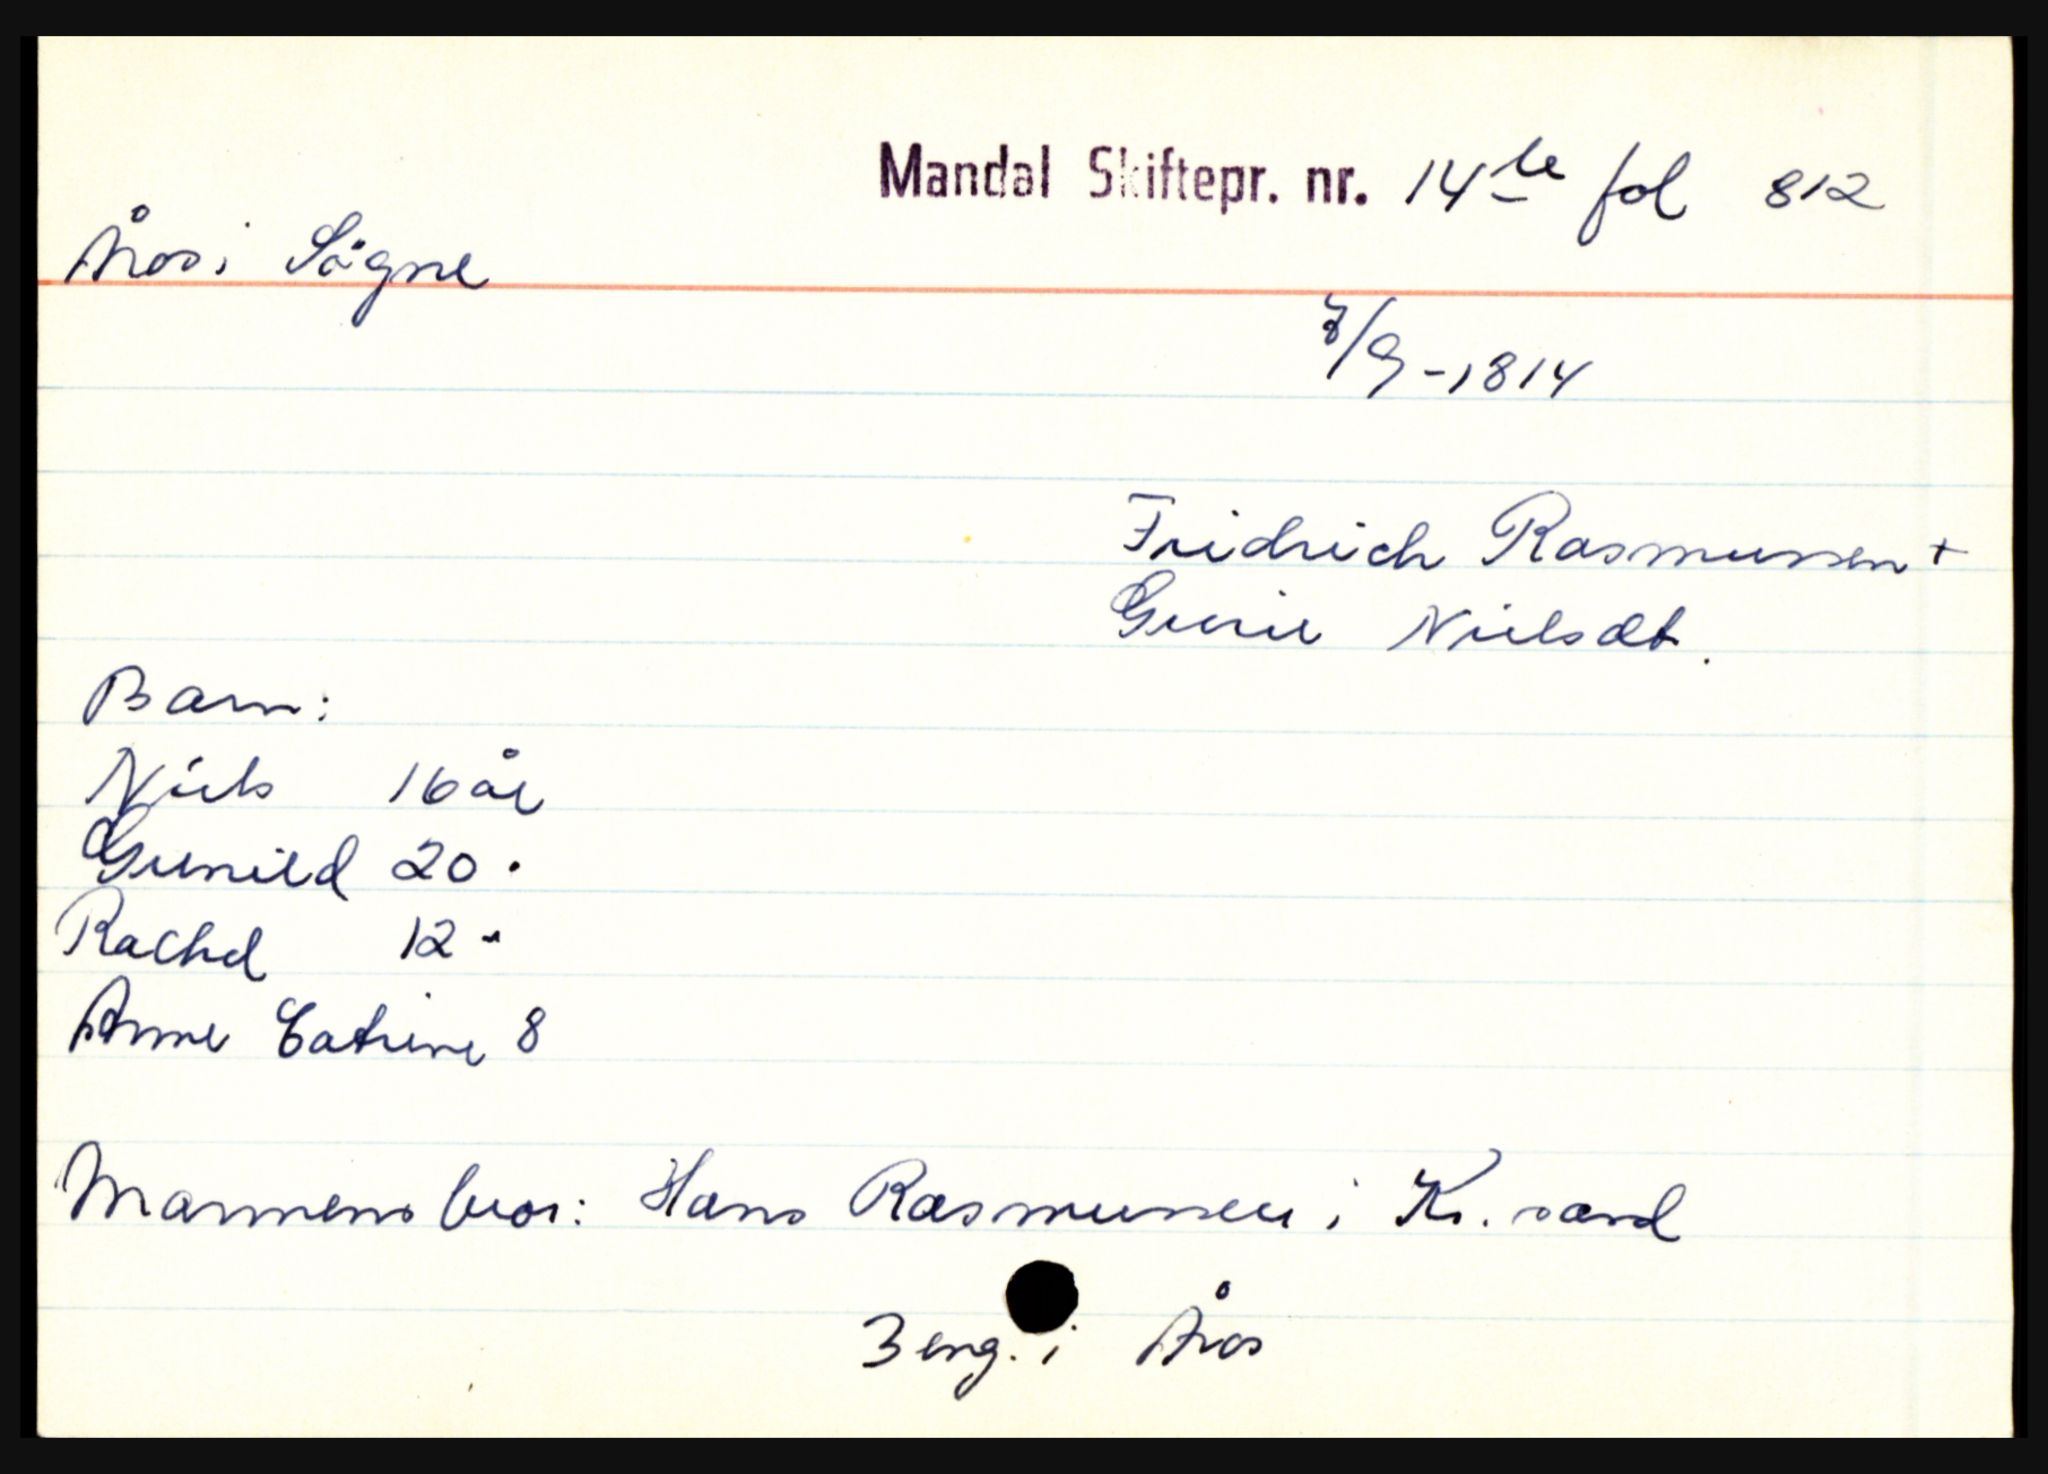 Mandal Skiftepr. nr. 14de fol 812
Åros i Sögne
7/9 - 1814
Fridrich Rasmussen +
Gunie Nielsdt.
Barn:
Niels 16 år
Gunild 20 "
Rachel 12 "
Anne Catrine 8
Mannens bror: Hans Rasmussen i Kr. sand
3 eng. i Åros